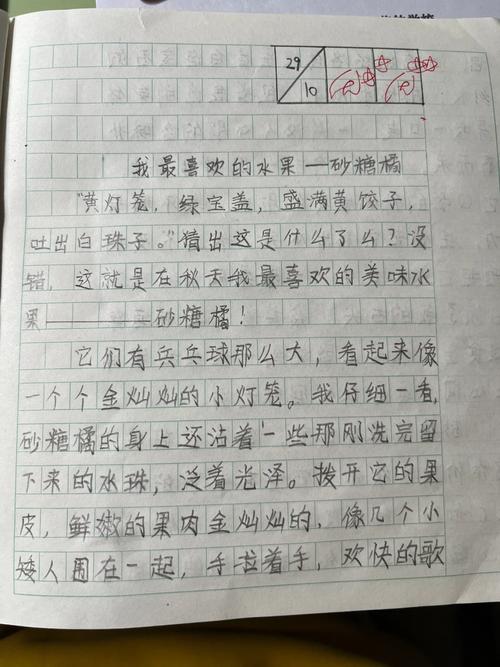 29
10
我最喜欢的水果——砂糖橘
“黄灯笼，绿宝盖，盛满黄饺子，
吐出白珠子。”猜出这是什么了么？没
错，这就是在秋天我最喜欢的美味水
果——砂糖橘！
它们有乒乓球那么大，看起来像
一个个金灿灿的小灯笼。我仔细一看，
砂糖橘的身上还沾着一些那刚洗完留
下来的水珠，泛着光泽。拨开它的果
皮，鲜嫩的果肉金灿灿的，像几个小
矮人围在一起，手拉着手，欢快的歌